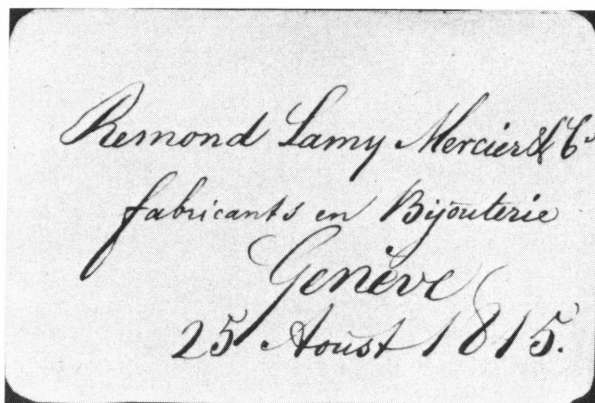 Remond Lamy Mercier & Co
fabricants en Bijouterie
Genève
25 Aoust 1815.